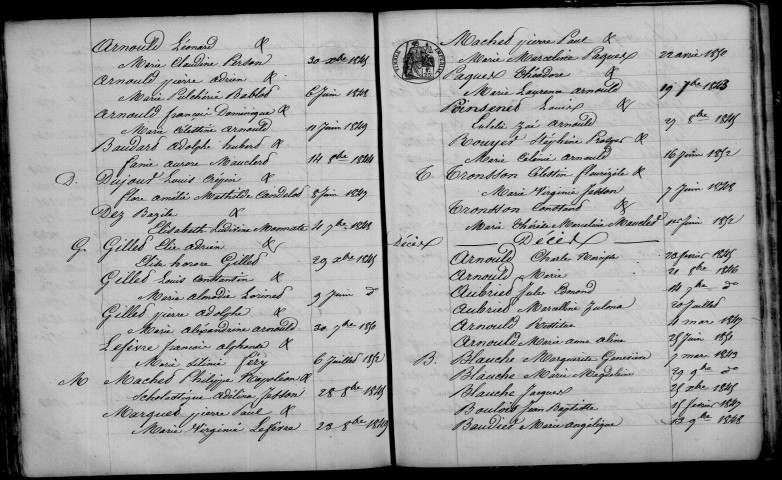 Arnould Léonard &
Marie Claudine Person 30 xbre 1845
Arnould pierre adrien &
Marie Pulchérie Bablot 6 juin 1848
Arnould françois Dominique &
Marie Célestine Arnould 11 juin 1849
Baudard Adolphe hubert &
fanie aurore Mauclerd 14 8bre 1844
D. Dujour Louis Crépin &
flore amélie Mathilde 8 juin 1847
Dez Bazile &
Elisabeth 4 7bre 1848
G Gilles Elie adrien &
Elisa honore Gilles 29 xbre 1845
Gilles Louis Constantin &
Marie almedie 9 juin do
Gilles pierre adolphe &
Marie alexandrine arnould 30 7bre 1850
Lefèvre francois alphonse &
Marie féry 6 juillet 1852
M Maches Philippe Napoléon &
Scholastique Jesson 28 8bre 1845
Marques pierre Paul &
Marie Virginie Lefèvre 23 8bre 1849
Maches pierre Paul &
Marie Marceline Paques 22 avril 1850
Paques théodore &
Marie Laurena Arnould 19 7bre 1843
Poinsenet Louis &
Zoé Arnould 27 8bre 1845
Rouyer Stéphine &
Marie Arnould 16 juin 1852
T. Tronsson Célestin &
Marie Virginie Jesson 7 juin 1848
Tronsson Constant &
Marie thérèse Marceline juin 1852
Décès Décès
Arnould Charles 23 fevrier 1845
Arnould Marie 21 8bre 1846
Aubries Jules 14 7bre do
Aubries Marcelline Julma 20 juillet
Arnould 4 mars 1849
Arnould Marie anne aline 25 juin 1850
B. Blanche Marguerite Geneviève 7 mars 1843
Blanche Marie Magdeline 29 9bre do
Blanche Jacques 25 xbre 1845
Boulois Jean Baptiste 15 fevrier 1847
Baudies Marie angélique 13 9bre 1848